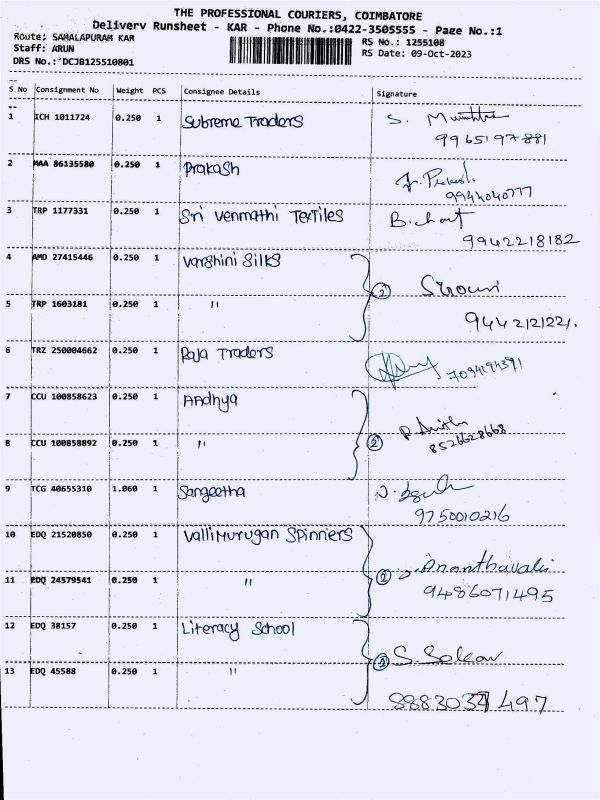 THE PROFESSIONAL COURIERS, COIMBATORE
Delivery Runsheet - KAR - Phone No.:0422-3505555 - Page No.:1
Route: SAMALAPURAM KAR
RS No.: 1255108
Staff: ARUN
RS Date: 09-Oct-2023
DRS No.: DCJB125510801
S. No Consignment No Weight PCS Consignee Details Signature
1 ICH 1011724 0.250 1 Subreme Traders S.
9965197881
2 MAA 86135580 0.250 1 Prakash
9944040777
3 TRP 1177331 0.250 1 Sri Venmathi Textiles
9942218182
4 AMD 27415446 0.250 1 Varshini Silks
2
5 TRP 1603181 0.250 1 "
9442121221.
6 TRZ 250004662 0.250 1 Raja Traders
7094194391
7 CCU 100858623 0.250 1 AAdhya
8526628668
8 CCU 100858892 0.250 1 " 2
9 TCG 40655310 1.060 1 Sangeetha
9750010216
10 EDQ 21520850 0.250 1 ValliMurugan Spinners
2 Ananthavalli
11 EDQ 24579541 0.250 1 "
9486071495
12 EDQ 38157 0.250 1 Literacy School
2 S.
13 EDQ 45588 0.250 1 "